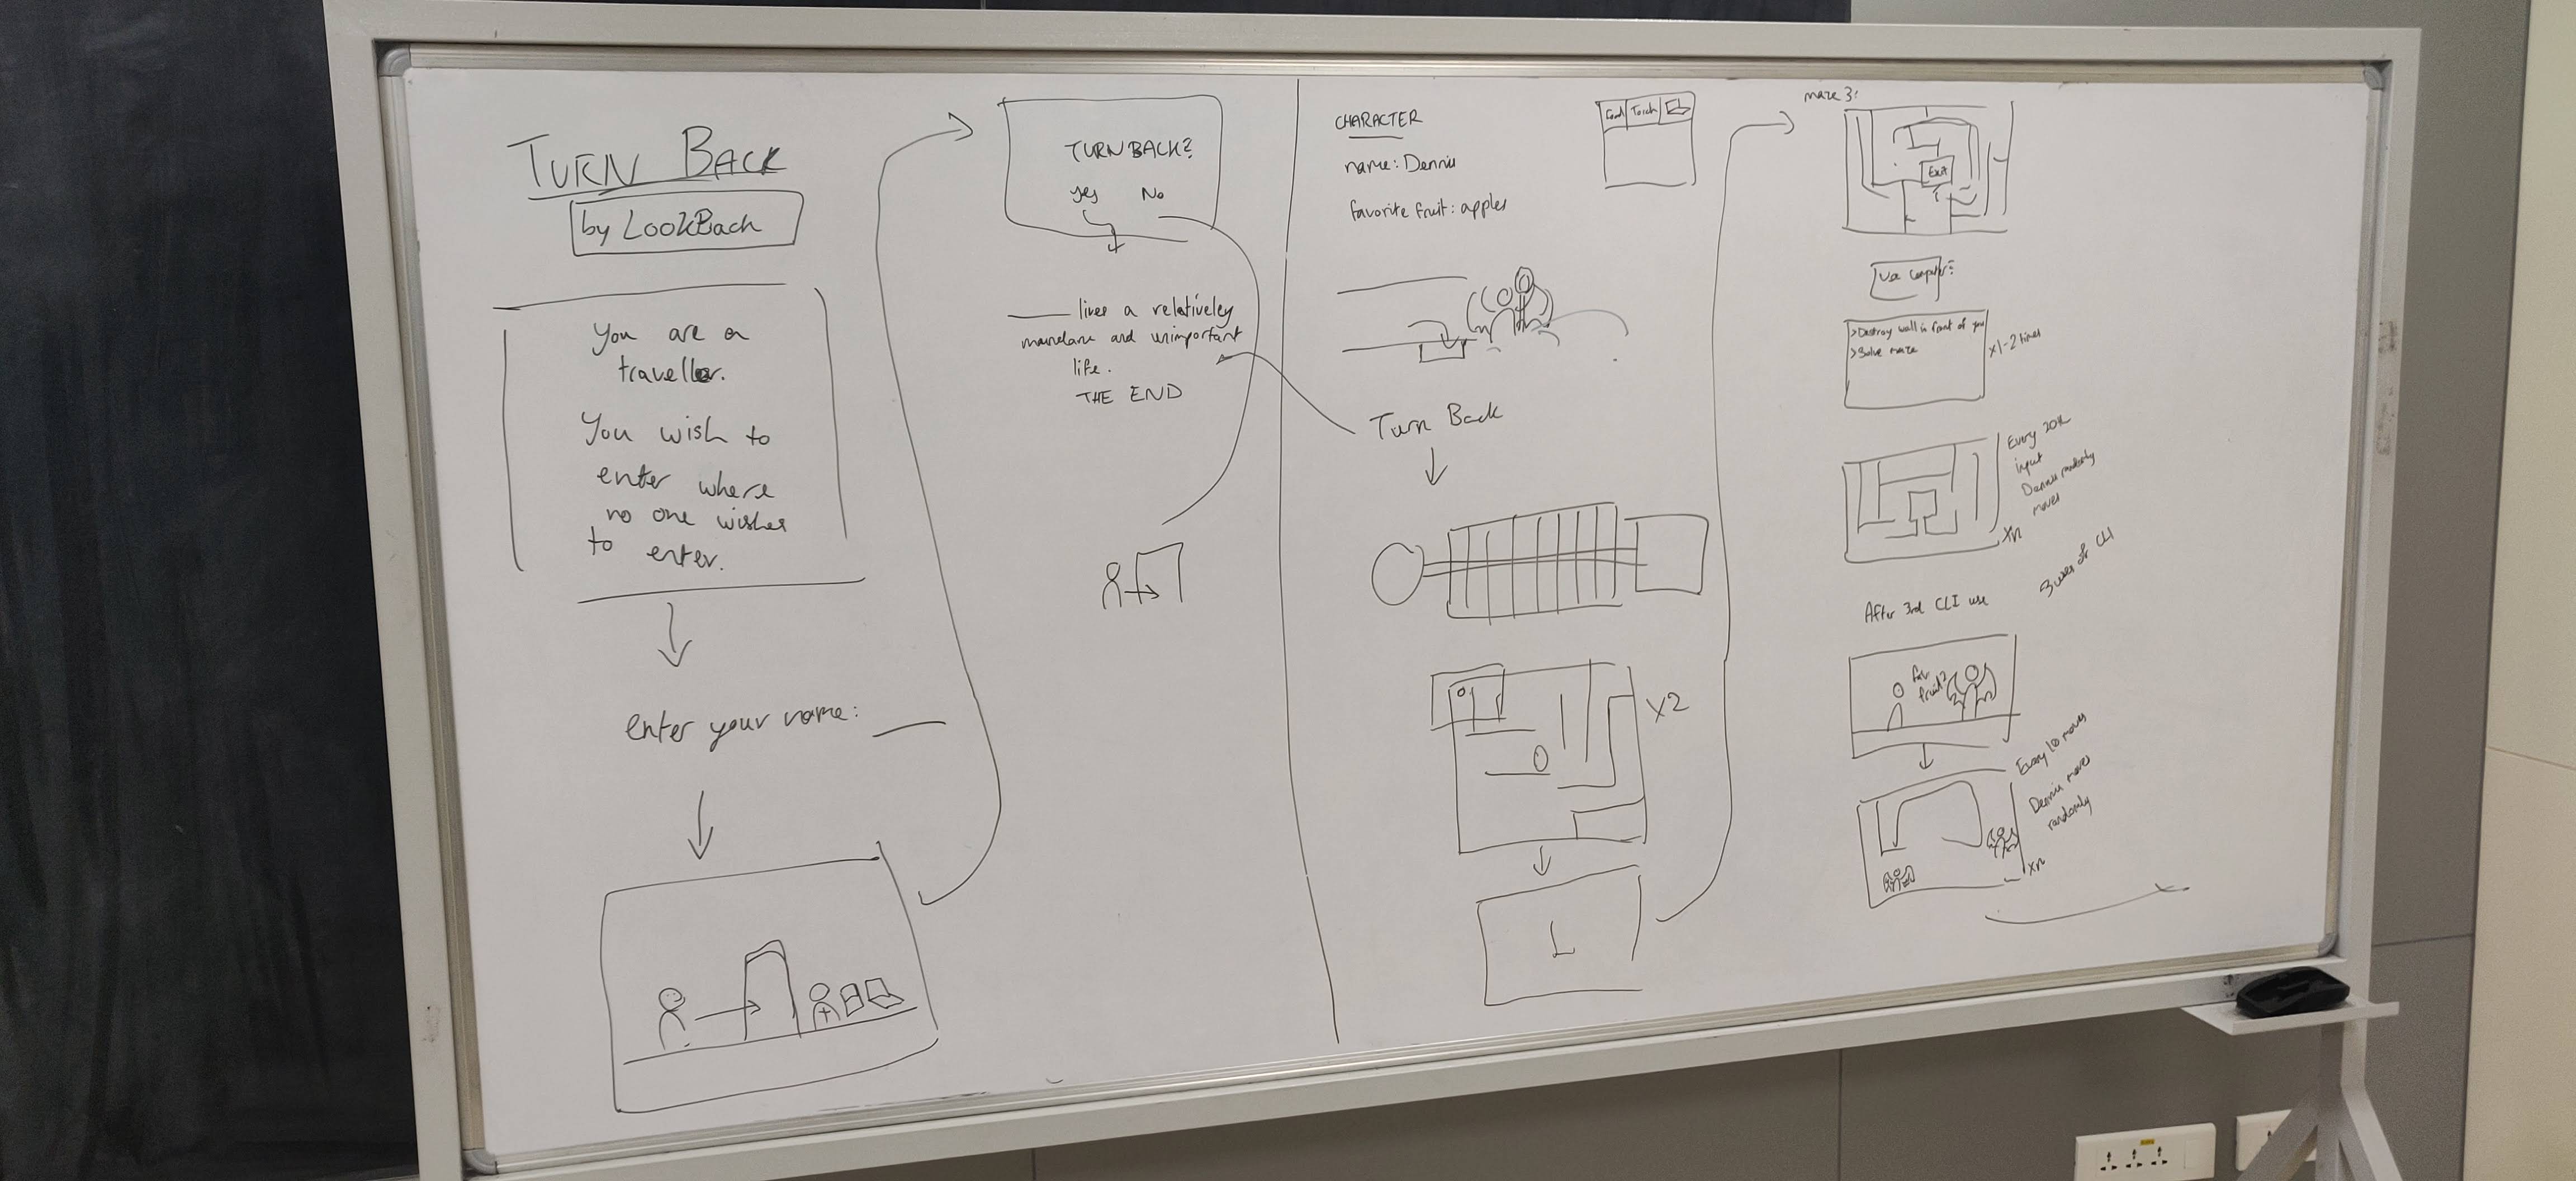 TURN BACK
by LOOKBack
You are a
traveller.
You wish to
enter where
no one wishes
to enter.
enter your name: ____
TURN BACK?
yes No
____ lives a relativeley
mundane and unimportant
life.
THE END
CHARACTER
name: Dennis
favorite fruit: apples
Food Torch
Turn Back
x2
L
maze 3:
Exit
Use computer:
>Destroy wall in front of you
>Solve maze
x1-2 times
Every 20th
input
Dennis randomly
moves
xn
3 uses of CLI
After 3rd CLI use
fav
fruit?
Every 10 moves
Dennis moves
randomly
xn